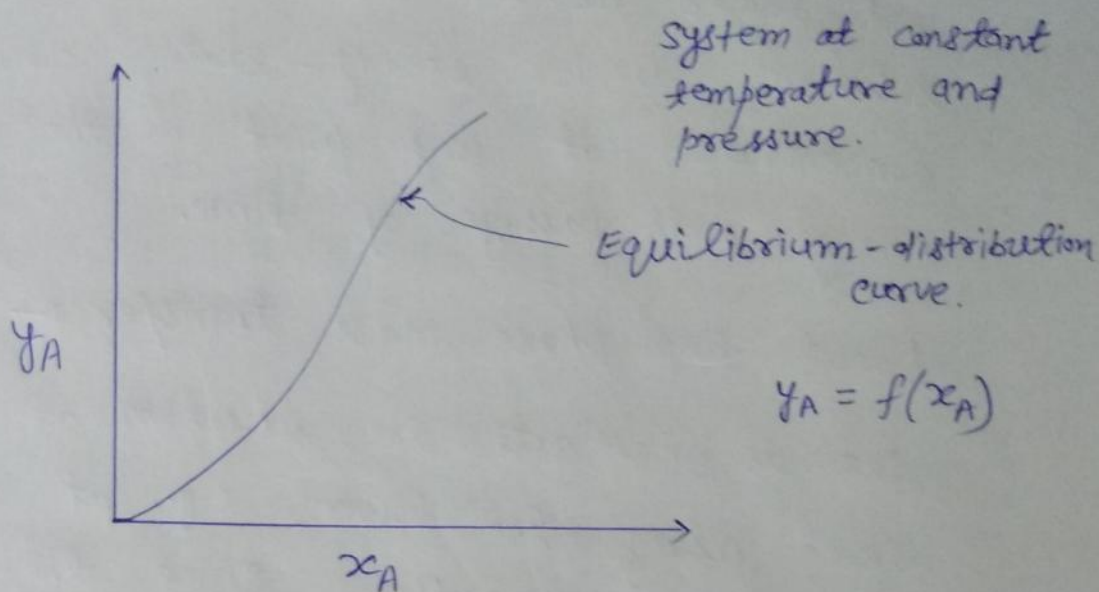 system at constant
temperature and
pressure.
Equilibrium-distribution
curve.
y_A
y_A = f(x_A)
x_A